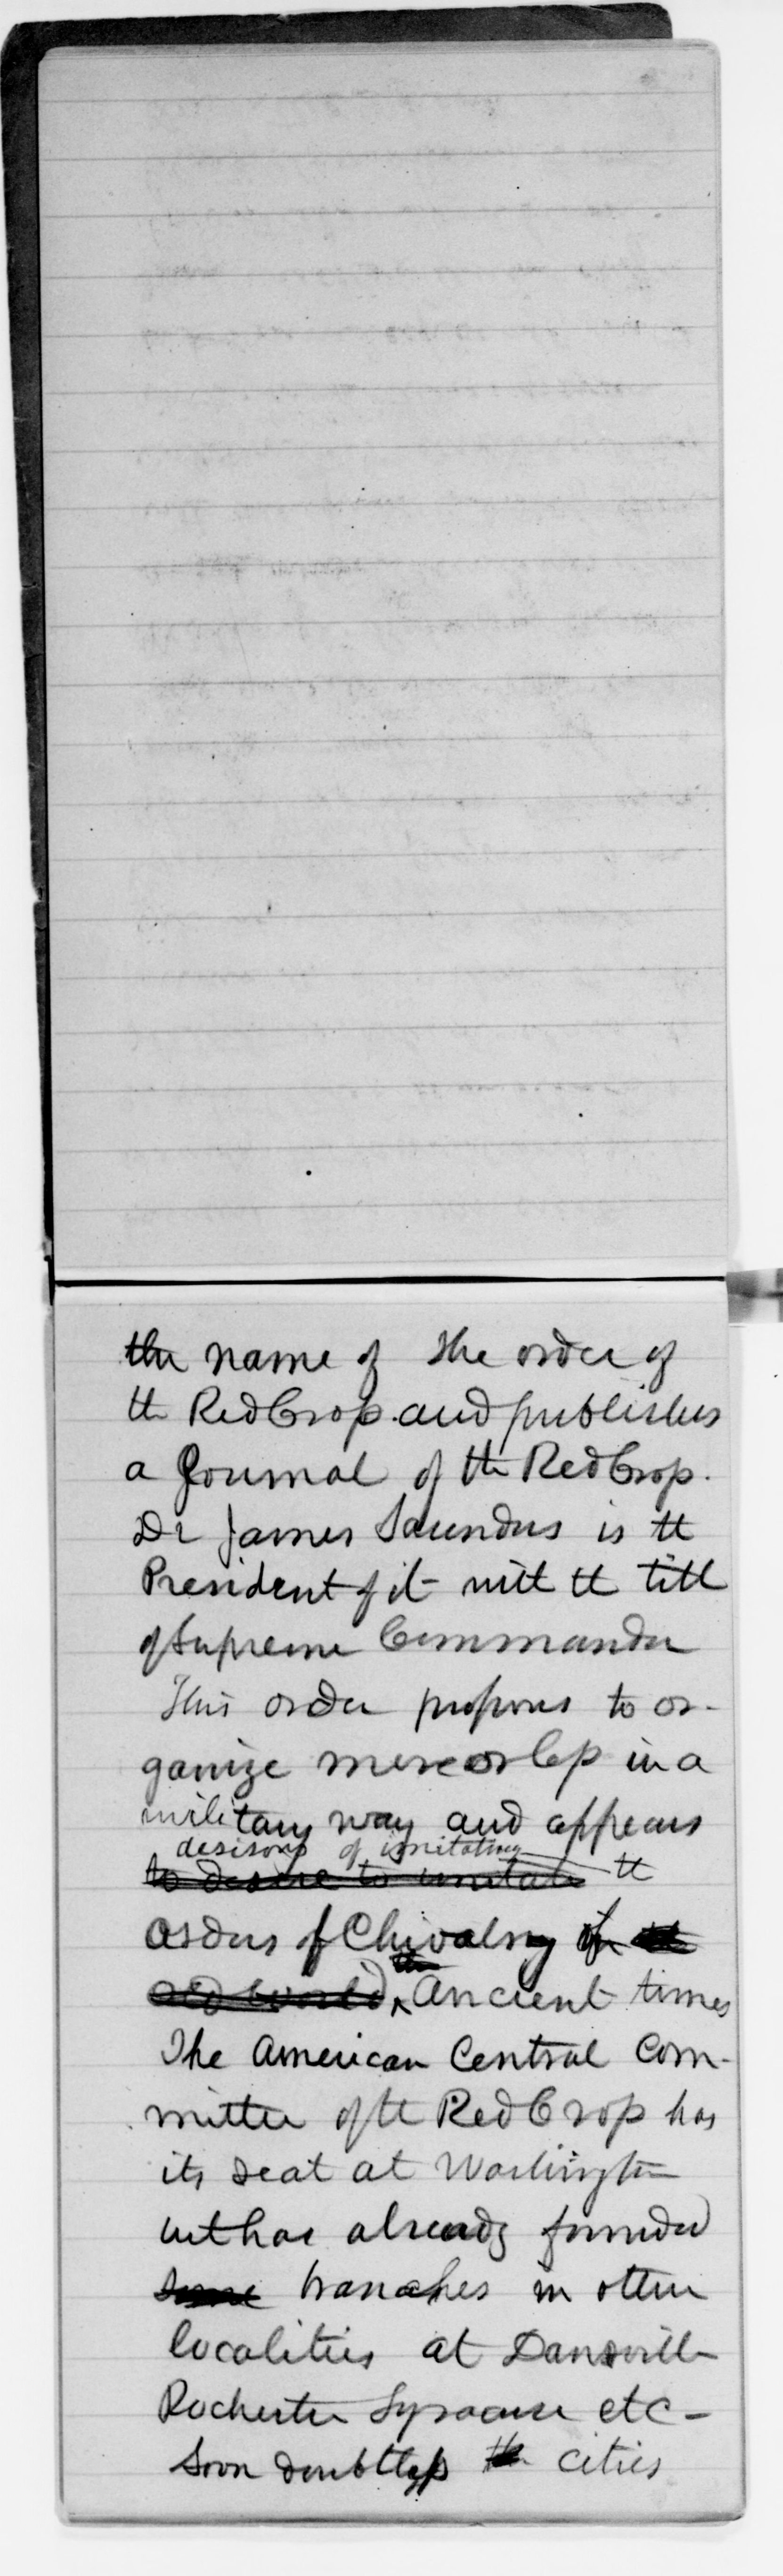 the name of the order of
th Red Cross and publishes
a Journal of th Red Cross.
Dr James Saunders is tt
President of it with tt title
of Supreme Commander
This order proposes to or-
ganize more or less in a
military way and appears
desirous of imitating
to desire to imitate tt
orders of Chivalry of the
the
old world, Ancient times
The American Central Com-
mittee of tt Red Cross has
its seat at Washington
but has already founded
some branches in other
localities at Dansville
Rochester Syracuse etc -
Soon doubtless the cities